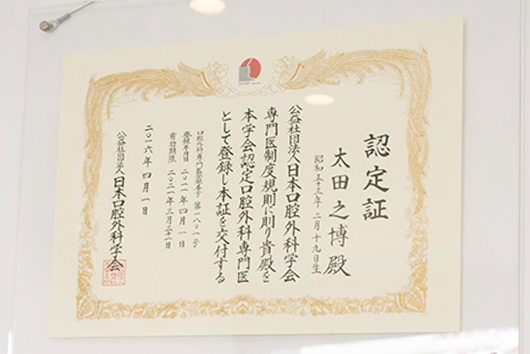 認定証
太田之博殿
昭和五十三年二月十九日生
公益社団法人日本口腔外科学会
専門医制度規則に則り貴殿を
本学会認定口腔外科専門医
として登録し本証を交付する
口腔外科専門医登録番号 第一八〇一号
登録年月日 二〇一一年四月一日
有効期限 二〇二一年三月三十一日
二〇一六年四月一日
公益社団法人日本口腔外科学会